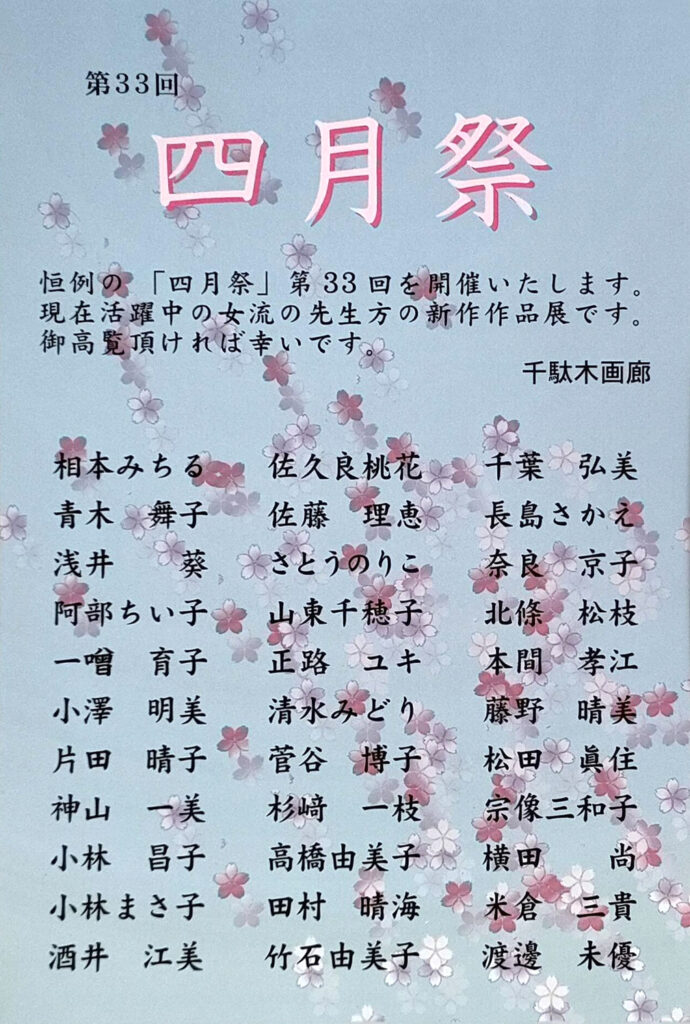 第33回
四月祭
恒例の「四月祭」第33回を開催いたします。
現在活躍中の女流の先生方の新作作品展です。
御高覧頂ければ幸いです。
千駄木画廊
相本みちる
青木　舞子
浅井　　葵
阿部ちい子
一噌　育子
小澤　明美
片田　晴子
神山　一美
小林　昌子
小林まさ子
酒井　江美
佐久良桃花
佐藤　理恵
さとうのりこ
山東千穂子
正路　ユキ
清水みどり
菅谷　博子
杉﨑　一枝
高橋由美子
田村　晴海
竹石由美子
千葉　弘美
長島さかえ
奈良　京子
北條　松枝
本間　孝江
藤野　晴美
松田　眞住
宗像三和子
横田　　尚
米倉　三貴
渡邊　未優